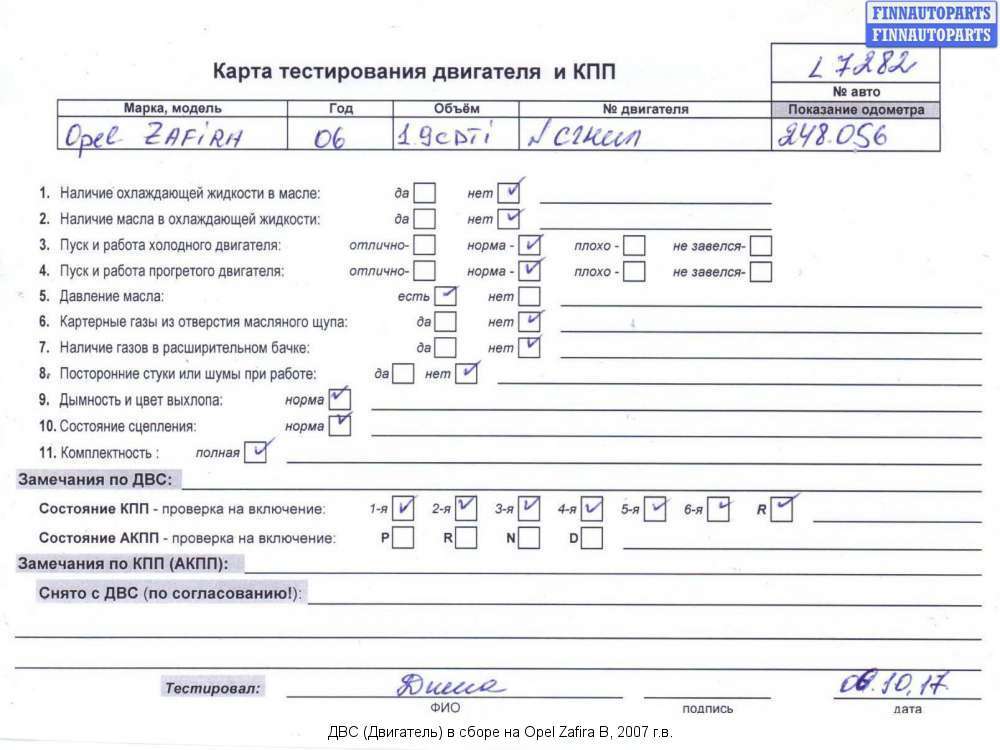 FINNAUTOPARTS
FINNAUTOPARTS
L 7282
Карта тестирования двигателя и КПП
№ авто
Марка, модель Год Объём № двигателя Показание одометра
Opel ZAFIRA 06 1.9CDTi 248.056
1. Наличие охлаждающей жидкости в масле: да нет
2. Наличие масла в охлаждающей жидкости: да нет
3. Пуск и работа холодного двигателя: отлично- норма - плохо - не завелся-
4. Пуск и работа прогретого двигателя: отлично- норма - плохо - не завелся-
5. Давление масла: есть нет
6. Картерные газы из отверстия масляного щупа: да нет
7. Наличие газов в расширительном бачке: да нет
8. Посторонние стуки или шумы при работе: да нет
9. Дымность и цвет выхлопа: норма
10. Состояние сцепления: норма
11. Комплектность : полная
Замечания по ДВС:
Состояние КПП - проверка на включение: 1-я 2-я 3-я 4-я 5-я 6-я R
Состояние АКПП - проверка на включение: P R N D
Замечания по КПП (АКПП):
Снято с ДВС (по согласованию!):
Тестировал: Дима 06.10.17
ФИО подпись дата
ДВС (Двигатель) в сборе на Opel Zafira B, 2007 г.в.